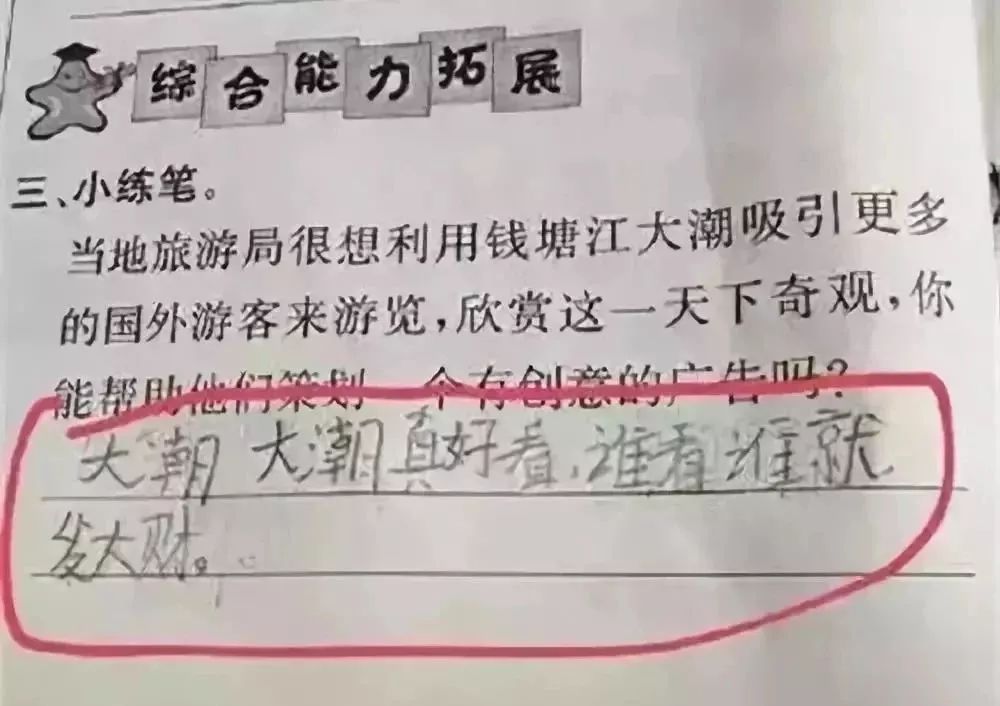 综合能力拓展
三、小练笔。
当地旅游局很想利用钱塘江大潮吸引更多
的国外游客来游览,欣赏这一天下奇观,你
能帮助他们策划一个有创意的广告吗?
大潮 大潮真好看,谁看谁就
发大财。